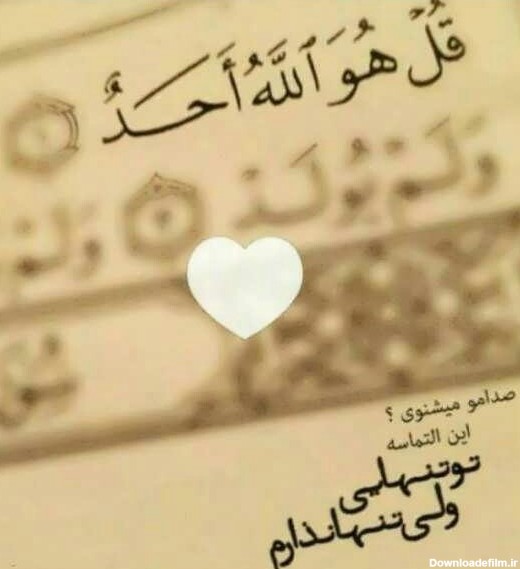 قُلْ هُوَ ٱللَّهُ أَحَدٌ
وَلَمْ يُولَدْ وَلَمْ
صدامو میشنوی ؟
این التماسه
تو تنهایی
ولی تنهانذارم
Downloadefilm.ir